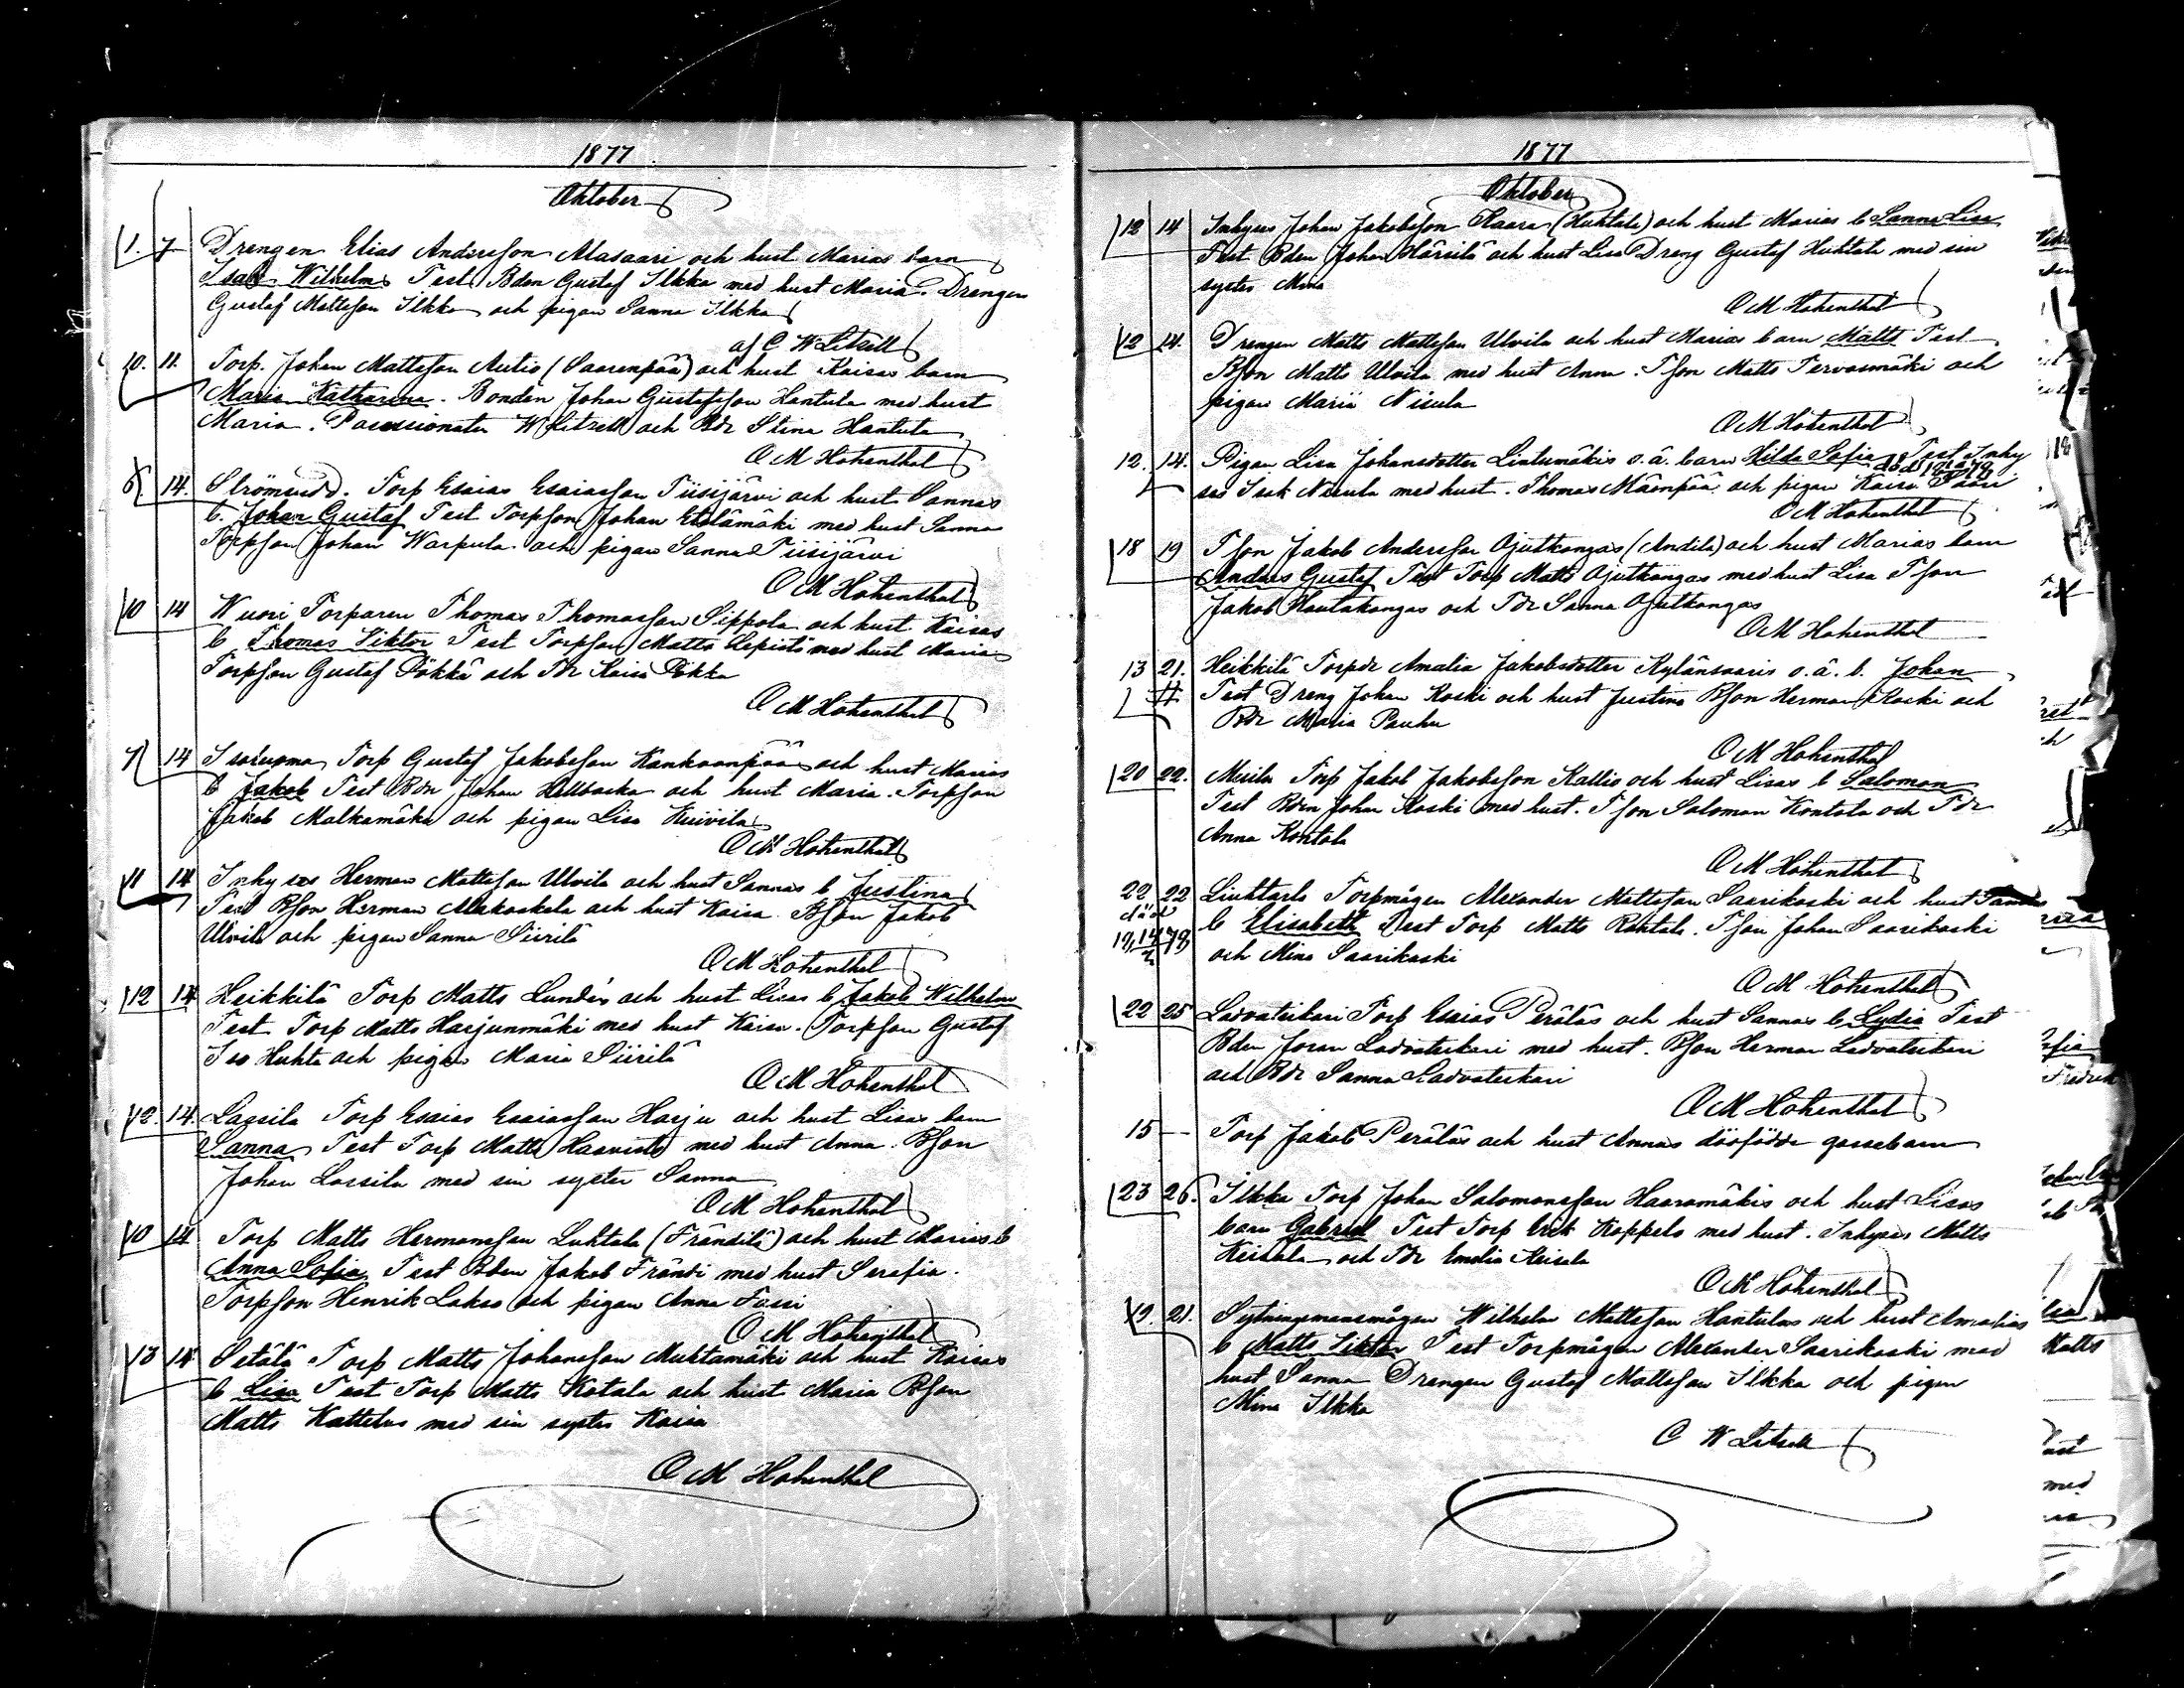 1877
Oktober
1. 7 Drengen Elias Andersson Alasaari och hust Marias barn
Isak Wilhelm Test Bden Gustaf Ilkka med hust Maria. Drengen
Gustaf Mattsson Ilkka och pigan Sanna Ilkka
af C W Litzell
10. 11. Torp. Johan Mattsson Autio (Saarenpää) och hust Kaisas barn
Maria Katharina. Bonden Johan Gustafsson Hantula med hust
Maria. Possessionaten W Litzell och Bdr Stina Hantula
O M Hohenthal
6 14. Strömsund. Torp Esaias Esaiasson Tiisijärvi och hust Sannas
b. Johan Gustaf Test Torpson Johan Etelämäki med hust Sanna
Torpson Johan Warpula och pigan Sanna Tiisijärvi
O M Hohenthal
10 14 Wuori Torparen Thomas Thomasson Sippola och hust Kaisas
b Thomas Viktor Test Torpson Matts Lepistö med hust Maria
Torpson Gustaf Pökkä och Tdr Kaisa Pökka
O M Hohenthal
7 14 Isoluoma Torp Gustaf Jakobsson Kankaanpää och hust Marias
b Jakob Test Bdn Johan Hellbacka och hust Maria. Torpson
Jakob Malkamäki och pigan Lisa Kuivila
O M Hohenthal
11 14 Inhyses Herman Mattsson Ulvila och hust Sannas b Justina
Test Bson Herman Alakoskela och hust Kaisa Bson Jakob
Ulvila och pigan Sanna Siirilä
O M Hohenthal
12 14 Heikkilä Torp Matts Lundéns och hust Lisas b Jakob Wilhelm
Test Torp Matts Harjunmäki med hust Kaisa. Torpson Gustaf
Iso Huhta och pigan Maria Siirilä
O M Hohenthal
12. 14. Lassila Torp Esaias Esaiasson Harju och hust Lisas barn
Sanna Test Torp Matts Haavisto med hust Anna. Bson
Johan Lassila med sin syster Sanna
O M Hohenthal
10 14 Torp Matts Hermansson Luhtala (Frändilä) och hust Marias b
Anna Sofia Test Bden Jakob Frändi med hust Serafia.
Torpson Henrik Lakso och pigan Anna Fossi
O M Hohenthal
13 14 Setälä Torp Matts Johansson Muhtamäki och hust Kaisas
b Lisa Test Torp Matts Kotala och hust Maria Bson
Matts Kattelus med sin syster Kaisa
O M Hohenthal
1877
Oktober
12 14 Inhyses Johan Jakobsson Kaara (Huhtala) och hust Marias b Sanna Lisa
Test Bden Johan Härsilä och hust Lisa Dreng Gustaf Huhtala med sin
syster Mina
O M Hohenthal
12 14. Drengen Matts Mattsson Ulvila och hust Marias barn Matts Test
Bson Matts Ulvila med hust Anna. Tson Matts Tervasmäki och
pigan Maria Nisula
O M Hohenthal
12. 14. Pigan Lisa Johansdotter Lintumäkis o.ä. barn Hilda Sofia Test Inhy
ses Isak Nisula med hust. Thomas Mäenpää och pigan Kaisa
O M Hohenthal
18 19 Tson Jakob Andersson Ojutkangas (Anttila) och hust Marias barn
Anders Gustaf Test Torp Matts Ojutkangas med hust Lisa Tson
Jakob Hautakangas och Tdr Sanna Ojutkangas
O M Hohenthal
13 21. Heikkilä Torpdr Amalia Jakobsdotter Kylänsaaris o.ä. b. Johan
Test Dreng Johan Koski och hust Justina Bson Herman Koski och
Bdr Maria Pauhu
O M Hohenthal
20 22. Miilu Torp Jakob Jakobsson Kallio och hust Lisas b Salomon
Test Bdn Johan Koski med hust. Tson Salomon Kontola och Tdr
Anna Kontola
O M Hohenthal
22 22 Liuhtari Torpmågen Alexander Mattsson Saarikoski och hust Sannas
död b Elisabeth Test Torp Matts Rahtala. Tson Johan Saarikoski
och Mina Saarikoski
O M Hohenthal
22 25 Ladvateikari Torp Esaias Peräläs och hust Sannas b Lydia Test
Bden Joran Ladvateikari med hust. Bson Herman Ladvateikari
och Bdr Sanna Ladvateikari
O M Hohenthal
15 — Torp Jakob Peräläs och hust Annas dödfödde gossebarn
23 26. Ilkka Torp Johan Salomonsson Haaramäkis och hust Lisas
barn Gabriel Test Torp Erik Koppelo med hust. Inhyses Matts
Keisala och Tdr Emelia Keisala
O M Hohenthal
19. 21. Sytningsmansmågen Wilhelm Mattsson Hantulas och hust Amalias
b Matts Viktor Test Torpmågen Alexander Saarikoski med
hust Sanna Drengen Gustaf Mattsson Ilkka och pigan
Mina Ilkka
C W Litzell